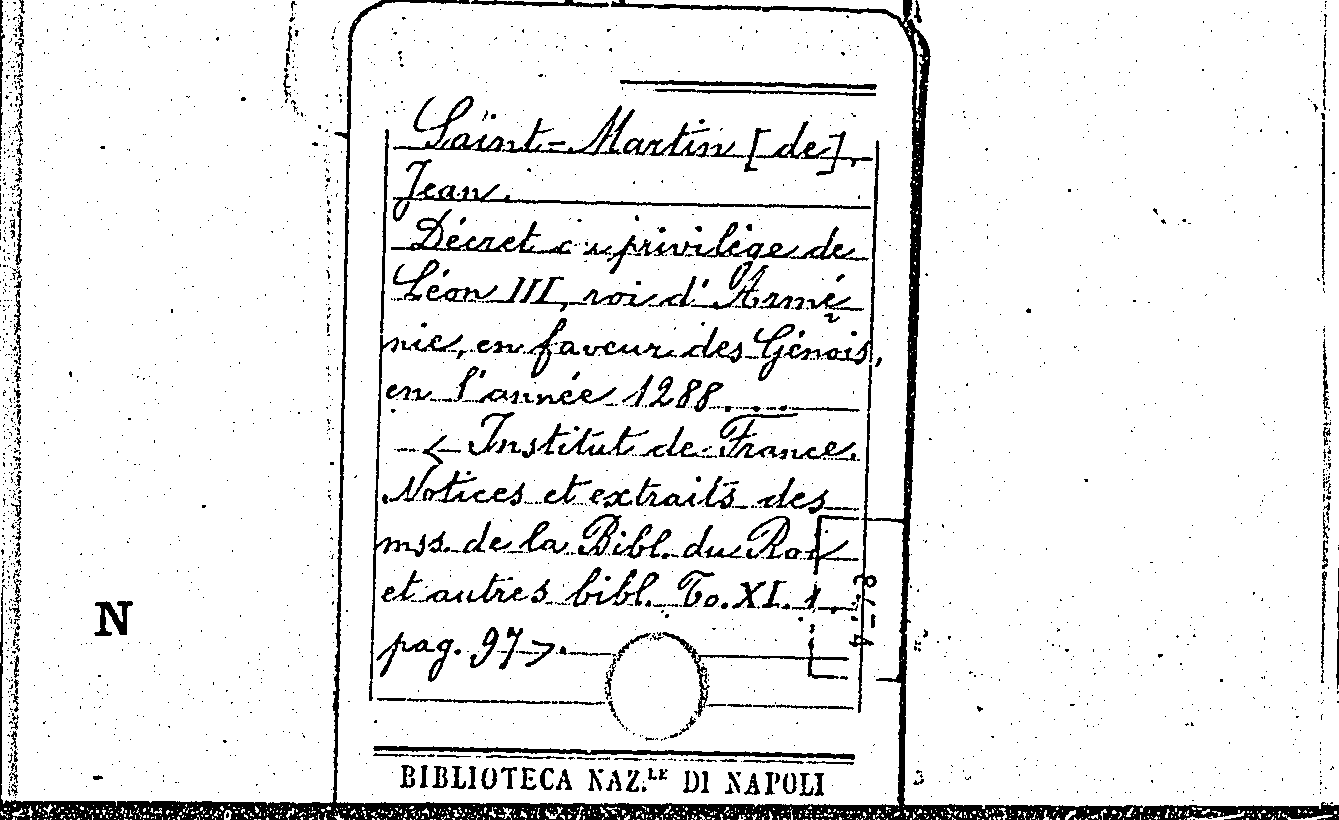 Saint-Martin [de].
Jean.
Décret ou privilège de
Léon III, roi d'Armé
nie, en faveur des Génois,
en l'année 1288....
< Institut de France.
Notices et extraits des
mss. de la Bibl. du Roi
et autres bibl. To. XI.
pag. 97>.
N
BIBLIOTECA NAZ.LE DI NAPOLI